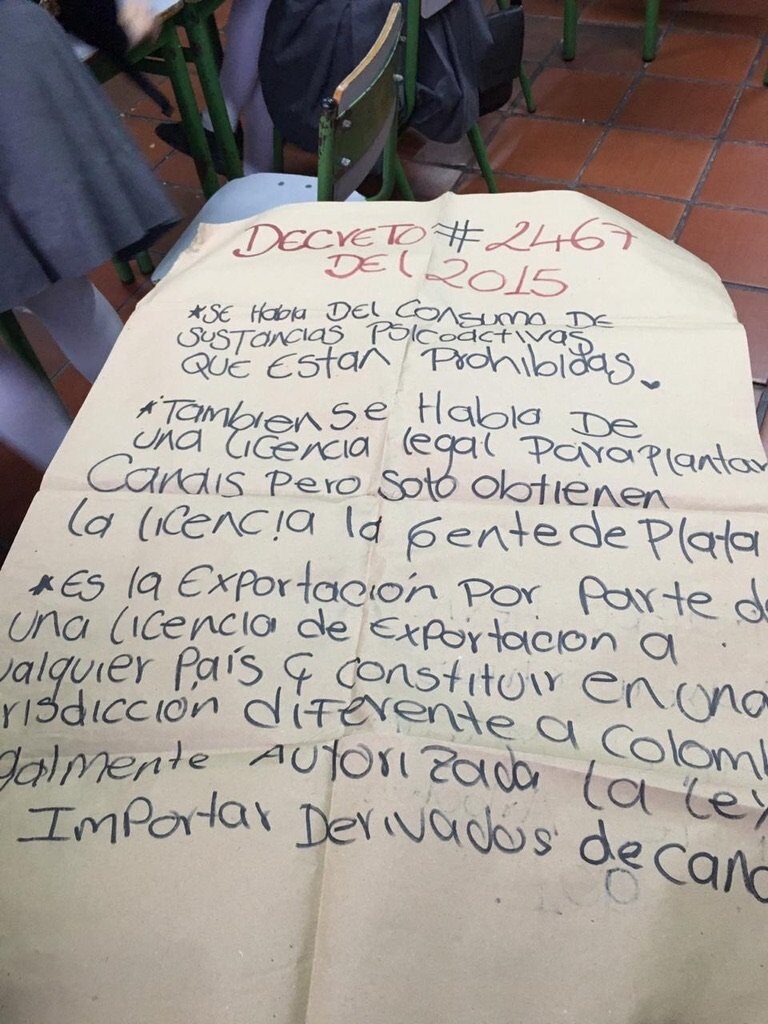 DECRETO # 2467
DEL 2015
*SE Habla DEL CONSUMO DE
SUSTANCIAS PSICOACTIVAS
QUE ESTAN PROHIBIDAS.
*TAMBIEN SE HABLA DE
UNA LICENCIA legal PARA PLANTAR
CANAIS PERO SOLO OBTIENEN
LA LICENCIA la GENTE DE PLATA
*ES la EXPORTACIÓN POR PARTE D
UNA LICENCIA de EXPORTACION A
ualquier País Y CONSTITUIR EN UNA
RISDICCIÓN DIFERENTE a COLOMB
galmente AUTORIZADA la ley
IMPORTAR DERIVADOS de CANA